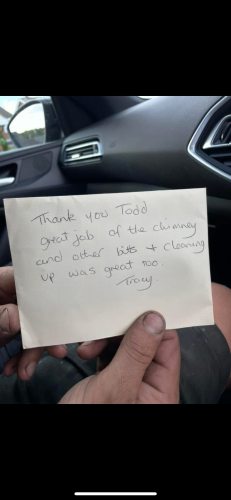 Thank you Todd
great job of the chimney
and other bits + cleaning
up was great too.
Tracy.